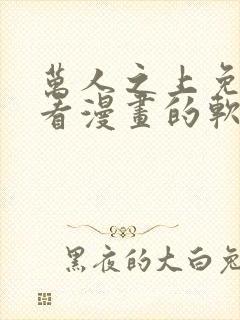 萬人之上免
看漫畫的軟
黑夜的大白兔